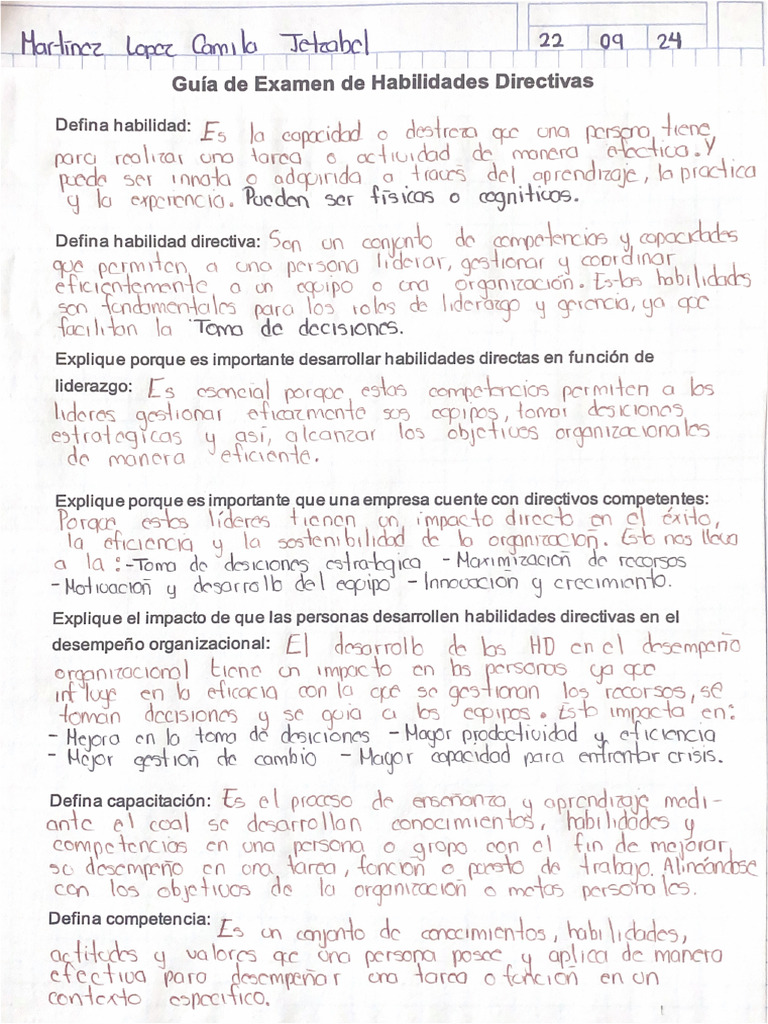 Martínez Lopez Camila Jetzabel
22 09 24
Guía de Examen de Habilidades Directivas
Defina habilidad: Es la capacidad o destreza que una persona tiene
para realizar una tarea o actividad de manera efectiva. Y
puede ser innata o adquirida a través del aprendizaje, la practica
y la experiencia. Pueden ser físicas o cognitivas.
Defina habilidad directiva: Son un conjunto de competencias y capacidades
que permiten, a una persona liderar, gestionar y coordinar
eficientemente a un equipo o una organización. Estas habilidades
son fundamentales para los roles de liderazgo y gerencia, ya que
facilitan la Toma de decisiones.
Explique porque es importante desarrollar habilidades directas en función de
liderazgo: Es esencial porque estas competencias permiten a los
lideres gestionar eficazmente sus equipos, tomar desiciones
estrategicas y así, alcanzar los objetivos organizacionales
de manera eficiente.
Explique porque es importante que una empresa cuente con directivos competentes:
Porque estos líderes tienen un impacto directo en el éxito,
la eficiencia y la sostenibilidad de la organización. Esto nos lleva
a la : -Toma de desiciones estrategica - Maximización de recursos
- Motivación y desarrollo del equipo - Innovación y crecimiento.
Explique el impacto de que las personas desarrollen habilidades directivas en el
desempeño organizacional: El desarrollo de las HD en el desempeño
organizacional tiene un impacto en las personas ya que
influye en la eficacia con la que se gestionan los recursos, se
toman decisiones y se guía a los equipos. Esto impacta en:
- Mejora en la toma de desiciones - Mayor productividad y eficiencia
- Mejor gestión de cambio - Mayor capacidad para enfrentar crisis.
Defina capacitación: Es el proceso de enseñanza y aprendizaje medi-
ante el cual se desarrollan conocimientos, habilidades y
competencias en una persona o grupo con el fin de mejorar
su desempeño en una tarea, función o puesto de trabajo. Alineándose
con los objetivos de la organización o metas personales.
Defina competencia: Es un conjunto de conocimientos, habilidades,
actitudes y valores que una persona posee y aplica de manera
efectiva para desempeñar una tarea o función en un
contexto específico.